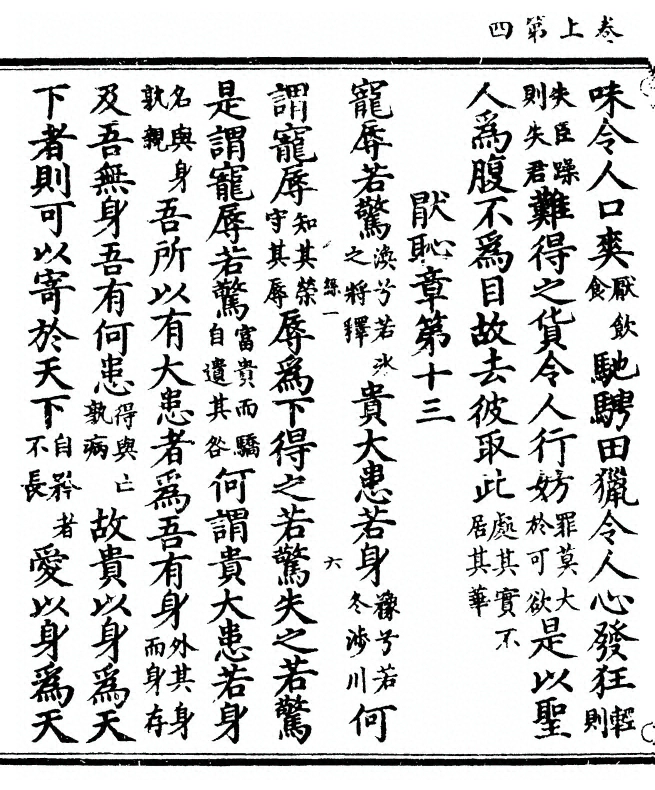 卷上第四
味令人口爽厭飲食馳騁田獵令人心發狂輕則
失臣躁則失君難得之貨令人行妨罪莫大於可欲是以聖
人為腹不為目故去彼取此處其實不居其華
猒恥章第十三
寵辱若驚渙兮若冰之將釋貴大患若身豫兮若冬涉川何
謂寵辱知其榮守其辱辱為下得之若驚失之若驚
是謂寵辱若驚富貴而驕自遺其咎何謂貴大患若身
名與身孰親吾所以有大患者為吾有身外其身而身存
及吾無身吾有何患得與亡孰病故貴以身為天
下者則可以寄於天下自矜者不長愛以身為天
六